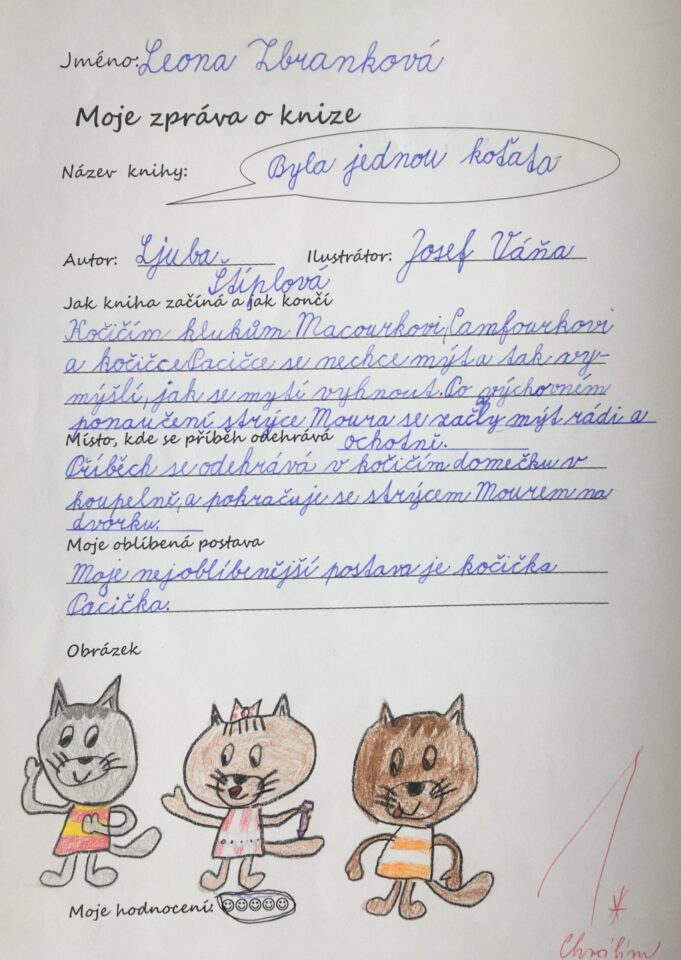 Jméno: Leona Zbranková
Moje zpráva o knize
Název knihy: Byla jednou koťata
Autor: Ljuba Štíplová Ilustrátor: Josef Váňa
Jak kniha začíná a jak končí
Kočičím klukům Macourkovi, Camfourkovi
a kočičce Pacičce se nechce mýt a tak vy-
mýšlí, jak se mytí vyhnout. Po výchovném
ponaučení strýce Moura se začly mýt rádi a
ochotně.
Místo, kde se příběh odehrává
Příběch se odehrává v kočičím domečku v
koupelně, a pokračuje se strýcem Mourem na
dvorku.
Moje oblíbená postava
Moje nejoblíbenější postava je kočička
Pacička.
Obrázek
Moje hodnocení:
1*
Chválím